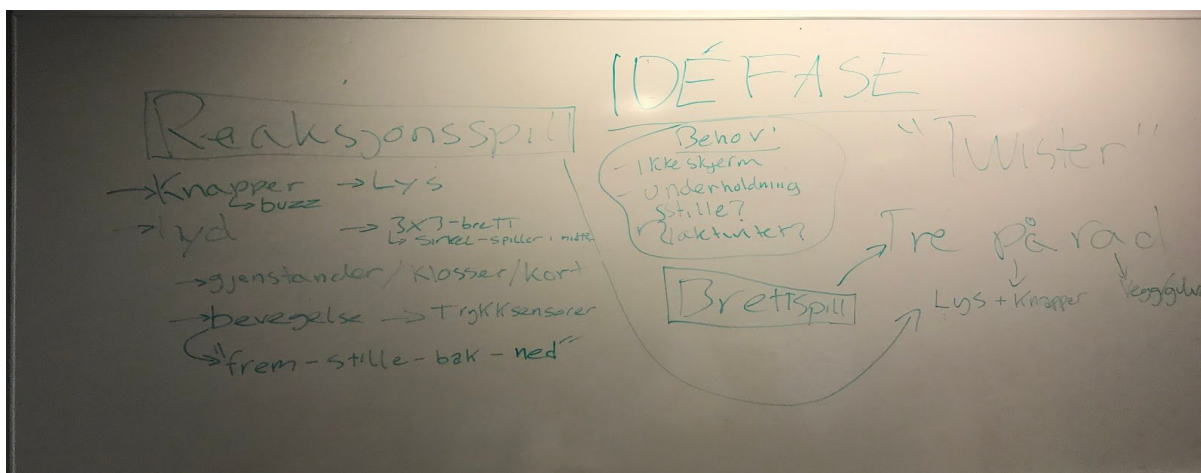 IDÉFASE
Reaksjonsspill
→ Knapper → Lys
↳ buzz
→ lyd → 3x3-brett
↳ Sirkel-spiller i midten
→ gjenstander/Klosser/Kort
→ bevegelse → Trykksensorer
"frem-stille-bak-ned"
Behov:
- Ikke skjerm
- underholdning
stille?
"Twister"
Brettspill
Tre på rad
Lys + Knapper
Vegg/gulv